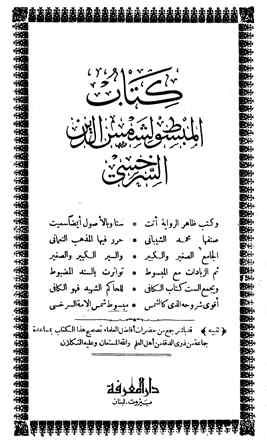 كتاب
المبسوط لشمس الدين
السرخسي
وكتب ظاهر الرواية أتت • ستا وبالأصول أيضا سميت
صنفها محمد الشيباني • حرر فيها المذهب النعماني
الجامع الصغير والكبير • والسير الكبير والصغير
ثم الزيادات مع المبسوط • تواترت بالسند المضبوط
ويجمع الست كتاب الكافي • للحاكم الشهيد فهو الكافي
أقوى شروحه الذي كالشمس • مبسوط شمس الأمة السرخسي
﴿ تنبيه ﴾ قد باشر جمع من حضرات أفاضل العلماء تصحيح هذا الكتاب بمساعدة
جماعة من ذوي الدقة من أهل العلم والله المستعان وعليه التكلان
دار المعرفة
بيروت - لبنان